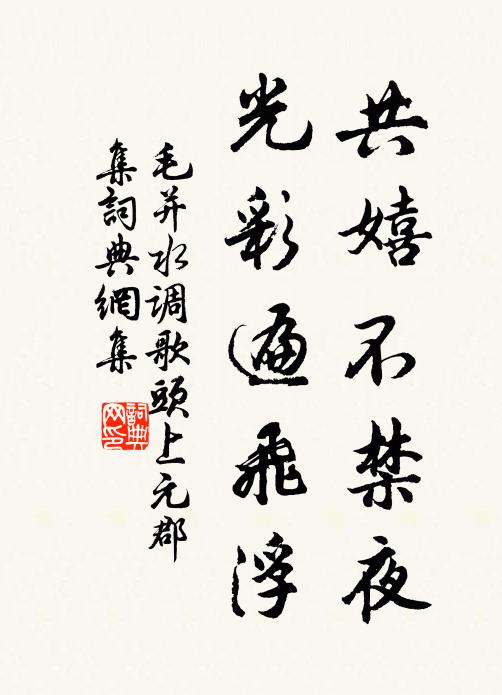 共嬉不禁夜
光彩遍飛浮
毛并水调歌頭上元郡
集詞典網集
詞典网印